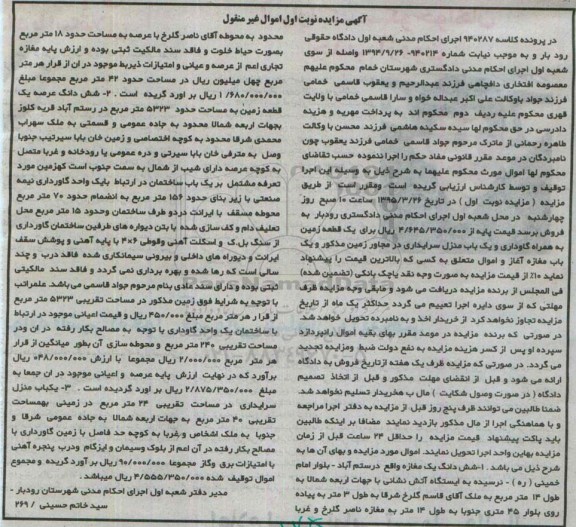 آگهی مزایده نوبت اول اموال غیر منقول
در پرونده کلاسه ۹۴۰۲۸۷ اجرای احکام مدنی شعبه اول دادگاه حقوقی
رود بار و به موجب نیابت شماره ۹۴۰۲۱۴-۱۳۹۴/۹/۲۶ واصله از سوی
شعبه اول اجرای احکام مدنی دادگستری شهرستان خمام محکوم علیهم
معصومه افتخاری دافچاهی فرزند عبدالرحیم و یعقوب قاسمی خمامی
فرزند جواد باوکالت علی اکبر عبداله خواه و سارا قاسمی خمامی با ولایت
قهری محکوم علیه ردیف دوم محکوم اند به پرداخت مهریه و هزینه
دادرسی در حق محکوم لها سیده سکینه هاشمی فرزند محسن با وکالت
طاهره رحمانی از ماترک مرحوم جواد قاسمی خمامی فرزند یعقوب چون
نامبردگان در موعد مقرر قانونی مفاد حکم را اجرا ننموده حسب تقاضای
محکوم لها اموال مورث محکوم علیهما به شرح ذیل به وسیله این اجرا
توقیف و توسط کارشناس ارزیابی گردیده است ومقرر است از طریق
مزایده ( مزایده نوبت اول ) در تاریخ ۱۳۹۵/۳/۲۶ ساعت ۱۰ صبح روز
چهارشنبه در محل شعبه اول اجرای احکام مدنی دادگستری رودبار به
فروش برسد قیمت پایه از ۴/۶۴۵/۳۵۰/۰۰۰ ریال برای یک قطعه زمین
به همراه گاوداری و یک باب منزل سرایداری در مجاور زمین مذکور و یک
باب مغازه آغاز و اموال متعلق به کسی که بالاترین قیمت را پیشنهاد
نماید ۱۰٪ از قیمت مزایده به صورت وجه نقد یاچک بانکی (تضمین شده)
فی المجلس از برنده مزایده دریافت می شود و مابقی ظرف
مهلتی که از سوی دایره اجرا تعییم می گردد حداکثر یک ماه از تاریخ
مزایده تجاوز نخواهد کرد از خریدار اخذ و به نامبرده تحویل خواهد شد.
در صورتی که برنده مزایده در موعد مقرر بهای بقیه اموال رانپردازد
سپرده او پس از کسر هزینه مزایده به نفع دولت ضبط ومزایده تجدید
می گردد. در صورتی که مزایده ظرف یک هفته ازتاریخ فروش به دادگاه
ارائه می شود و قبل از انقضای مهلت مذکور و قبل از اتخاذ تصمیم
دادگاه ( در صورت وصول شکایت ) مال ب هخریدار تسلیم نخواهد شد.
ضمنا طالبین می توانند ظرف پنج روز قبل از مزایده به دفتر اجرا مراجعه
و با هماهنگی اجرا از مال مذکور بازدید نمایند مضافا بر اینکه طالبین
باید پاکت پیشنهاد قیمت مزایده را حداقل ۲۴ ساعت قبل از زمان
مزایده بهاین واحد اجرا تحویل نمایند. اموال مورد مزایده و بهای آن ها به
شرح ذیل می باشد . ۱-شش دانگ یک مغازه واقع درستم آباد - بلوار امام
خمینی ( ره ) - نرسیده به ایستگاه آتش نشانی با جهات اربعه شمالا به
طول ۱۴ متر مربع به ملک آقای قاسم گلرخ شرقا به طول ۳ متر به پیاده
روی بلوار ۴۵ متری جنوبا به طول ۱۴ متر به مغازه ناصر گلرخ و غربا
محدود به محوطه آقای ناصر گلرخ با عرصه به مساحت حدود ۱۸ متر مربع
بصورت حیاط خلوت و فاقد سند مالکیت ثبتی بوده و ارزش پایه مغازه
تجاری اعم از عرصه و عیانی و امتیازات ذیربط موجود در ان از قرار هر متر
مربع چهل میلیون ریال در مساحت حدود ۴۲ متر مربع مجموعا مبلغ
۱/۶۸۰/۰۰۰/۰۰۰ ریال بر اورد گردیده است . ۲- شش دانگ عرصه یک
قطعه زمین به مساحت حدود ۵۳۲۳ متر مربع در رستم آباد قریه کلوز
بجهات اربعه شمالا محدود به جاده عمومی و قسمتی به ملک سهراب
محمدی شرقا محدود به کوچه اختصاصی و زمین خان بابا سیرتیب جنوبا
وصل به متصرفی خان بابا سیرتی و دره عمومی یا رودخانه و غربا متصل
به کوچه عرصه دارای شیب از شمال به سمت جنوب است کهزمین مورد
تعرفه مشتمل بر یک باب ساختمان در ارتباط بایک واحد گاوداری نیمه
صنعتی با زیر بنای حدود ۱۵۶ متر مربع به انضمام حدود ۷۰ متر مربع
محوطه مسقف با ایرانت دردو طرف ساختمان وحدود ۱۵ متر مربع محل
تعلیف دام و کف سازی شده با بتن دیواره های طرفین ساختمان گاورداری
از سنگ بل.ک و اسکلت آهنی وقوطی ۶*۴ با پایه آهنی و پوشش سقف
ایرانت و دیواره های داخلی و بیرونی سیمانکاری شده فاقد درب و چند
سالی است که رها شده و بهره برداری نمی گردد و فاقد سند مالکیتی
ثبتی بوده و داری سند عادی بنام مرحوم جواد قاسمی می باشد. علمراتب
با توجه به شرایط فوق زمین مذکور در مساحت تقریبی ۵۳۲۳ متر مربع
از قرا ر هر متر مربع مبلغ ۴۵۰/۰۰۰ ریال و قیمت اعیانی موجود در ارتباط
با ساختمان یک واحد گاوداری با توجه به مصالح بکار رفته در ان ودر
مساحت تقریبی ۲۴۰ متر مربع و محوطه سازی آن بطور میانگین از قرار
هر متر مربع ۲/۰۰۰/۰۰۰ ریال مجموعا با ارزش ۰۴۸/۰۰۰/۰۰۰ ریال
برآورد که در نهایت ارزش پایه عرصه و اعیانی موجود در ان جمعا به
مبلغ ۲/۸۷۵/۳۵۰/۰۰۰ ریال بر اورد گردیده است . ۳- یکباب منزل
سرایداری در مساحت تقریبی ۲۴ متر مربع در زمینی بهمساحت
تقریبی ۴۰ متر مربع به جهات اربعه شمالا به جاده عمومی شرقا و
جنوبا به ملک اشخاص و غربا به کوچه حد فاصل با زمین گاورداری با
مصالح بکار رفته در آن اعم از بلوک وسیمان و ایزگام ودرب پنجره آهنی
با امتیازات برق وگاز مجموعا ۹۰/۰۰۰/۰۰۰ ریال بر آورد گردید و مجموع
اموال توقیف شده ۴/۵۵۵/۳۵۰/۰۰۰ ریال میباشد .
مدیر دفتر شعبه اول اجرای احکام مدنی شهرستان رودبار -
سید خاتم حسینی / ۲۶۹